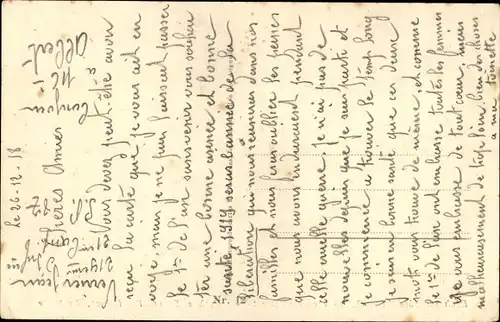 le 26-12-18
Chères Amies
Vous devez peut être avoir
reçu la carte que je vous ait en
voyé, mais je ne puis laissait passer
le 1er de l'an sans venir vous souhai
ter une bonne année et bonne
santé, 1919 sera l'année de la
libération qui nous reunira dans nos
familles et nous fera oublier les peines
que nous avons enduraient pendant
cette guerre. Je n'ai pas de
nouvelles depuis que je suis parti et
je commence a trouver le temps long
je suis en bonne santé que ces deux
mots vous trouve de même, et comme
le 1er de l'an ont embrasse toutes les femmes
je vous embrasse de tout cœur mais
malheureusement de trop loin, bien des choses
a
Bonjour
Albert